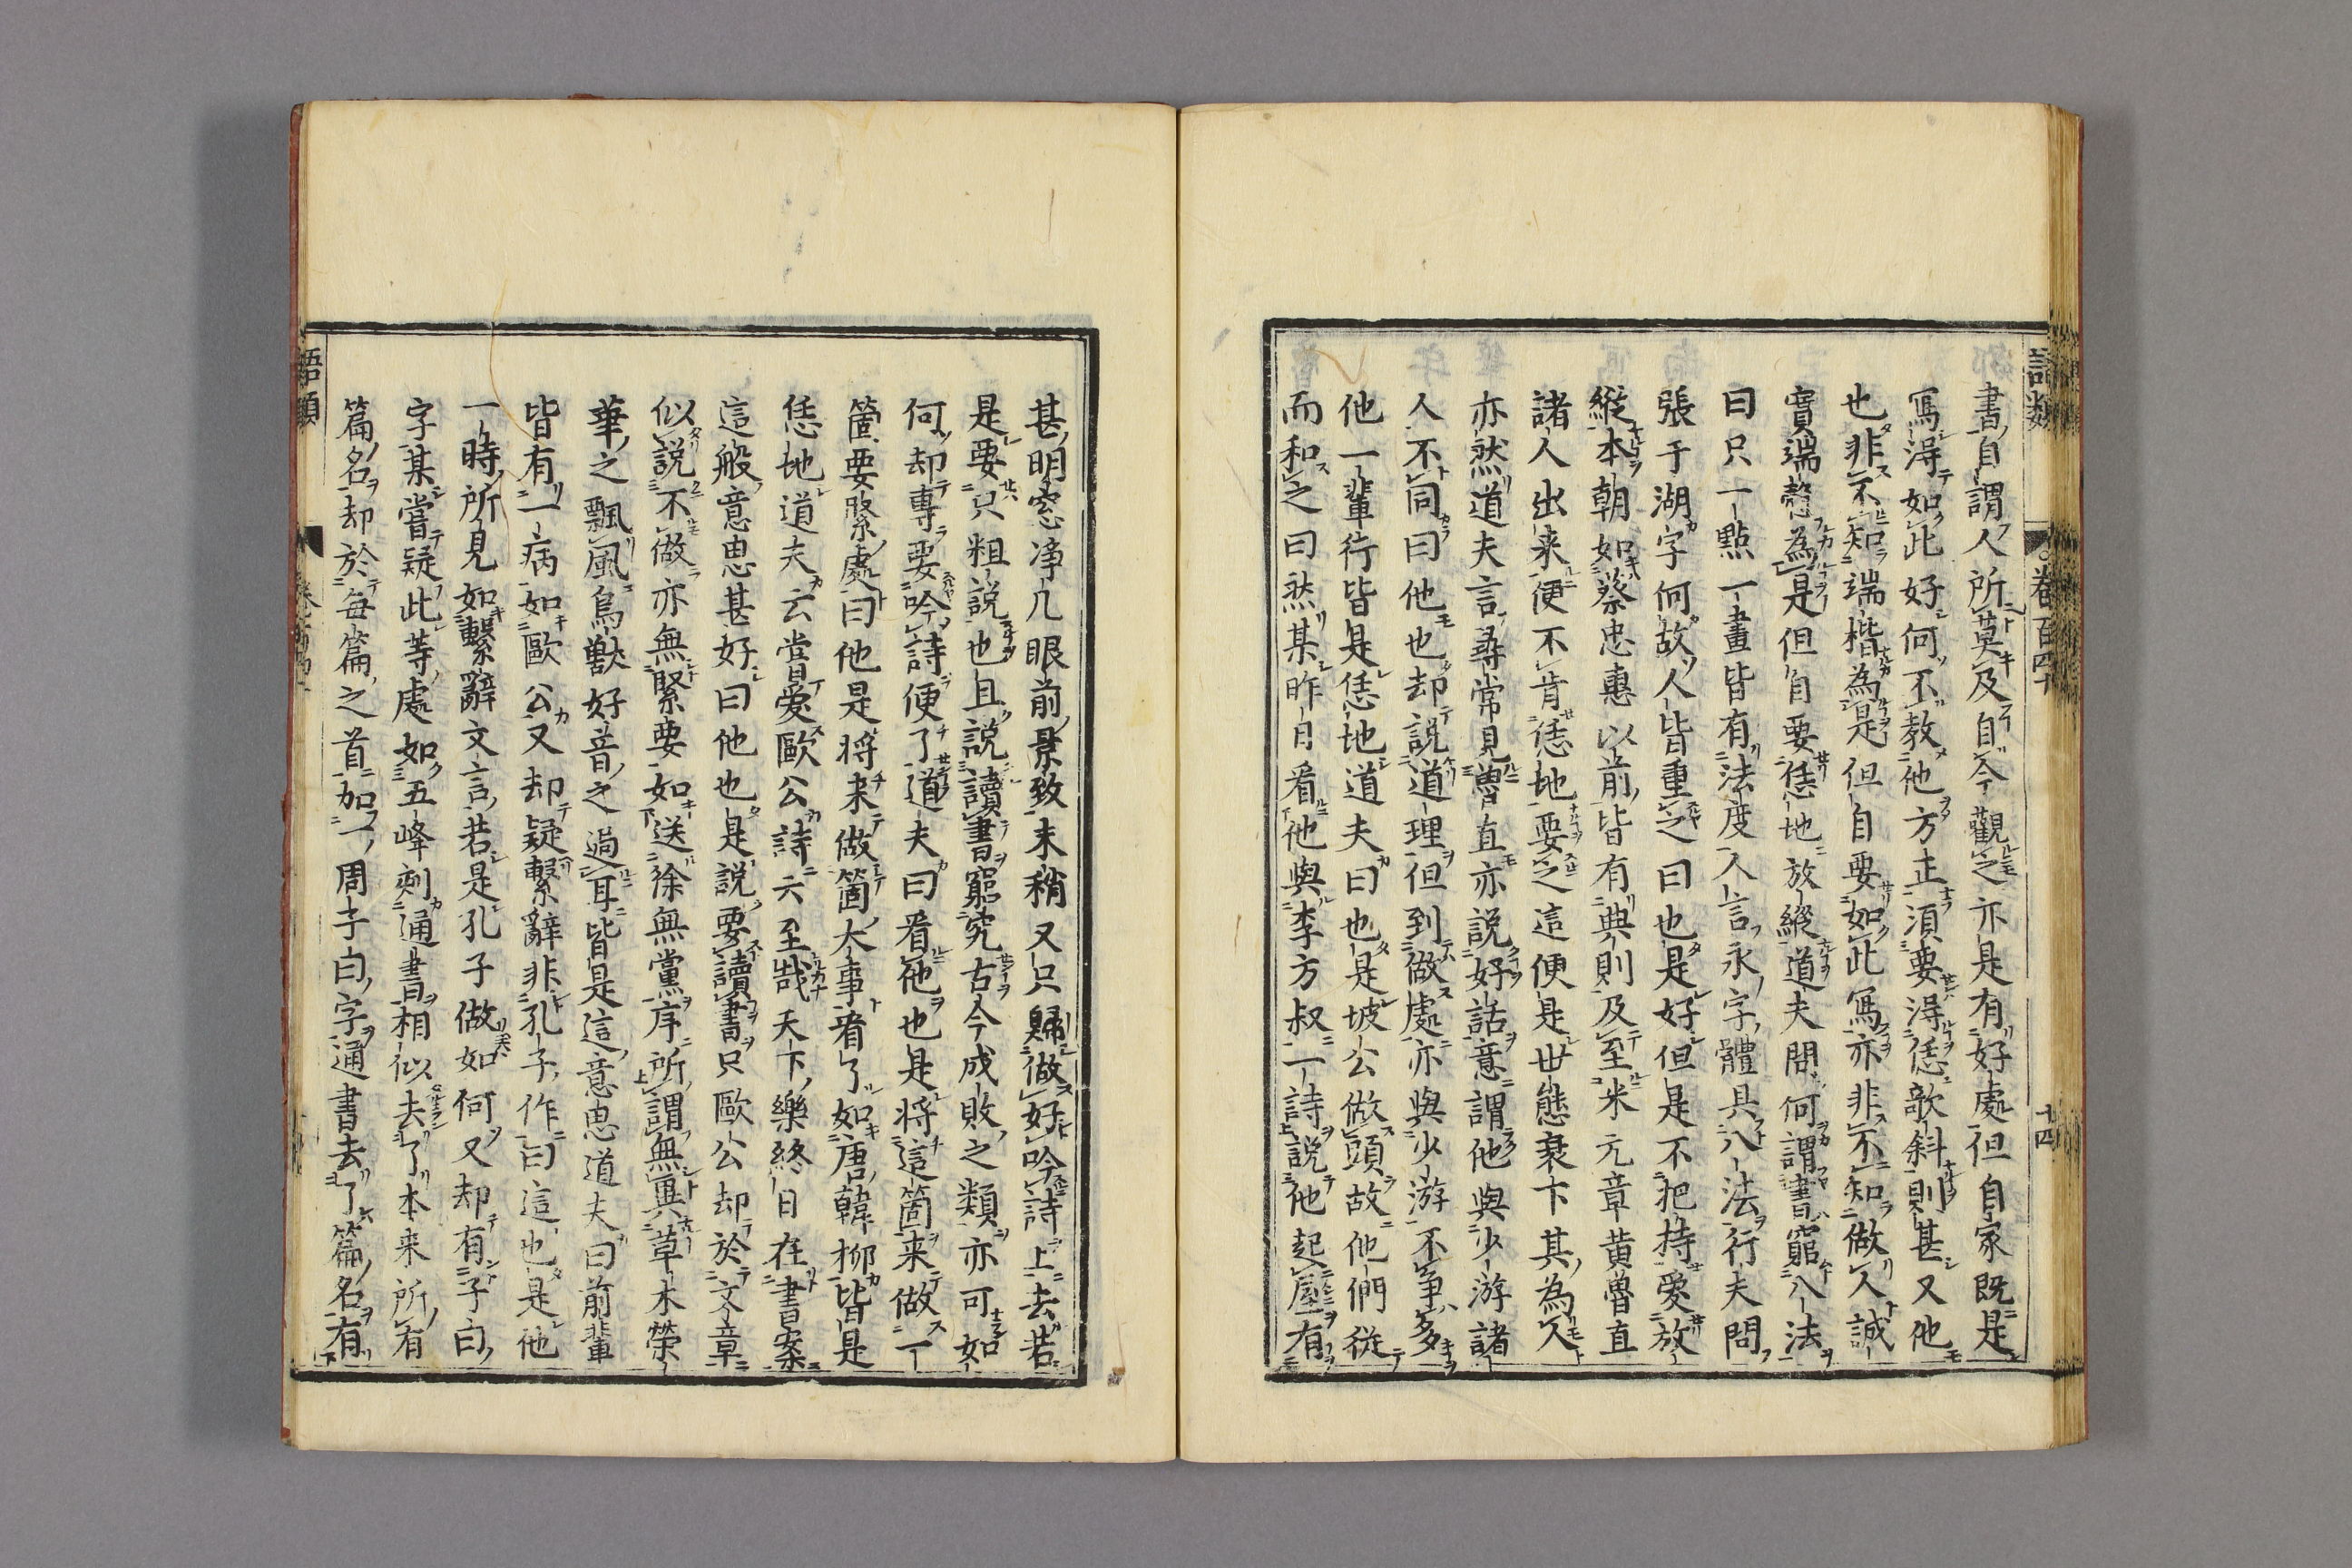 語類
卷百四十
十四
書自謂人所莫及自今觀之亦是有好處但自家既是
寫得如此好何不教他方正須要得恁欹斜則甚又他
也非不知端楷為是但自要如此寫亦非不知做人誠
實端慤為是但自要恁地放縱道夫問何謂書窮八法
曰只一點一畫皆有法度人言永字體具八法行夫問
張于湖字何故人皆重之曰也是好但是不把持愛放
縱本朝如蔡忠惠以前皆有典則及至米元章黃魯直
諸人出来便不肯恁地要之這便是世態衰下其為人
亦然道夫言尋常見魯直亦説好話意謂他與少游諸
人不同曰他也却説道理但到做處亦與少游不争多
他一輩行皆是恁地道夫曰也是坡公做頭故他們從
而和之曰然某昨日看他與李方叔一詩説他起屋有
甚明窓淨几眼前景致末稍又只歸做好吟詩上去若
是要只粗説也且説讀書窮究古今成敗之類亦可如
何却專要吟詩便了道夫曰看他也是将這箇来做一
箇要緊處曰他是将来做箇大事看了如唐韓柳皆是
恁地道夫云嘗愛歐公詩云至哉天下樂終日在書案
這般意思甚好曰他也是説要讀書只歐公却於文章
似説不做亦無緊要如送徐無黨序所謂無異草木榮
華之飄風鳥獸好音之過耳皆是這意思道夫曰前輩
皆有一病如歐公又却疑繫辭非孔子作曰這也是他
一時所見如繫辭文言若是孔子做如何又却有子曰
字某嘗疑此等處如五峰刻通書相似去了本来所有
篇名却於每篇之首加一周子曰字通書去了篇名有
語類